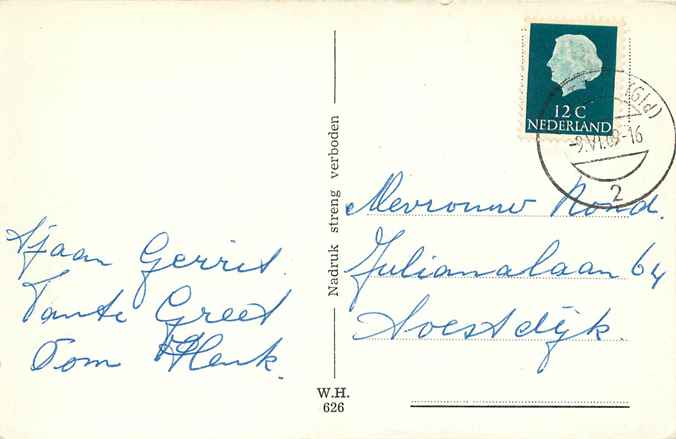 Sjaan Gerrit.
Tante Greet
Oom Henk.
Nadruk streng verboden
W.H.
626
12 C
NEDERLAND
(Gld)
-9.VI.69-16
2
Mevrouw Rond.
Julianalaan 64
Soestdijk.